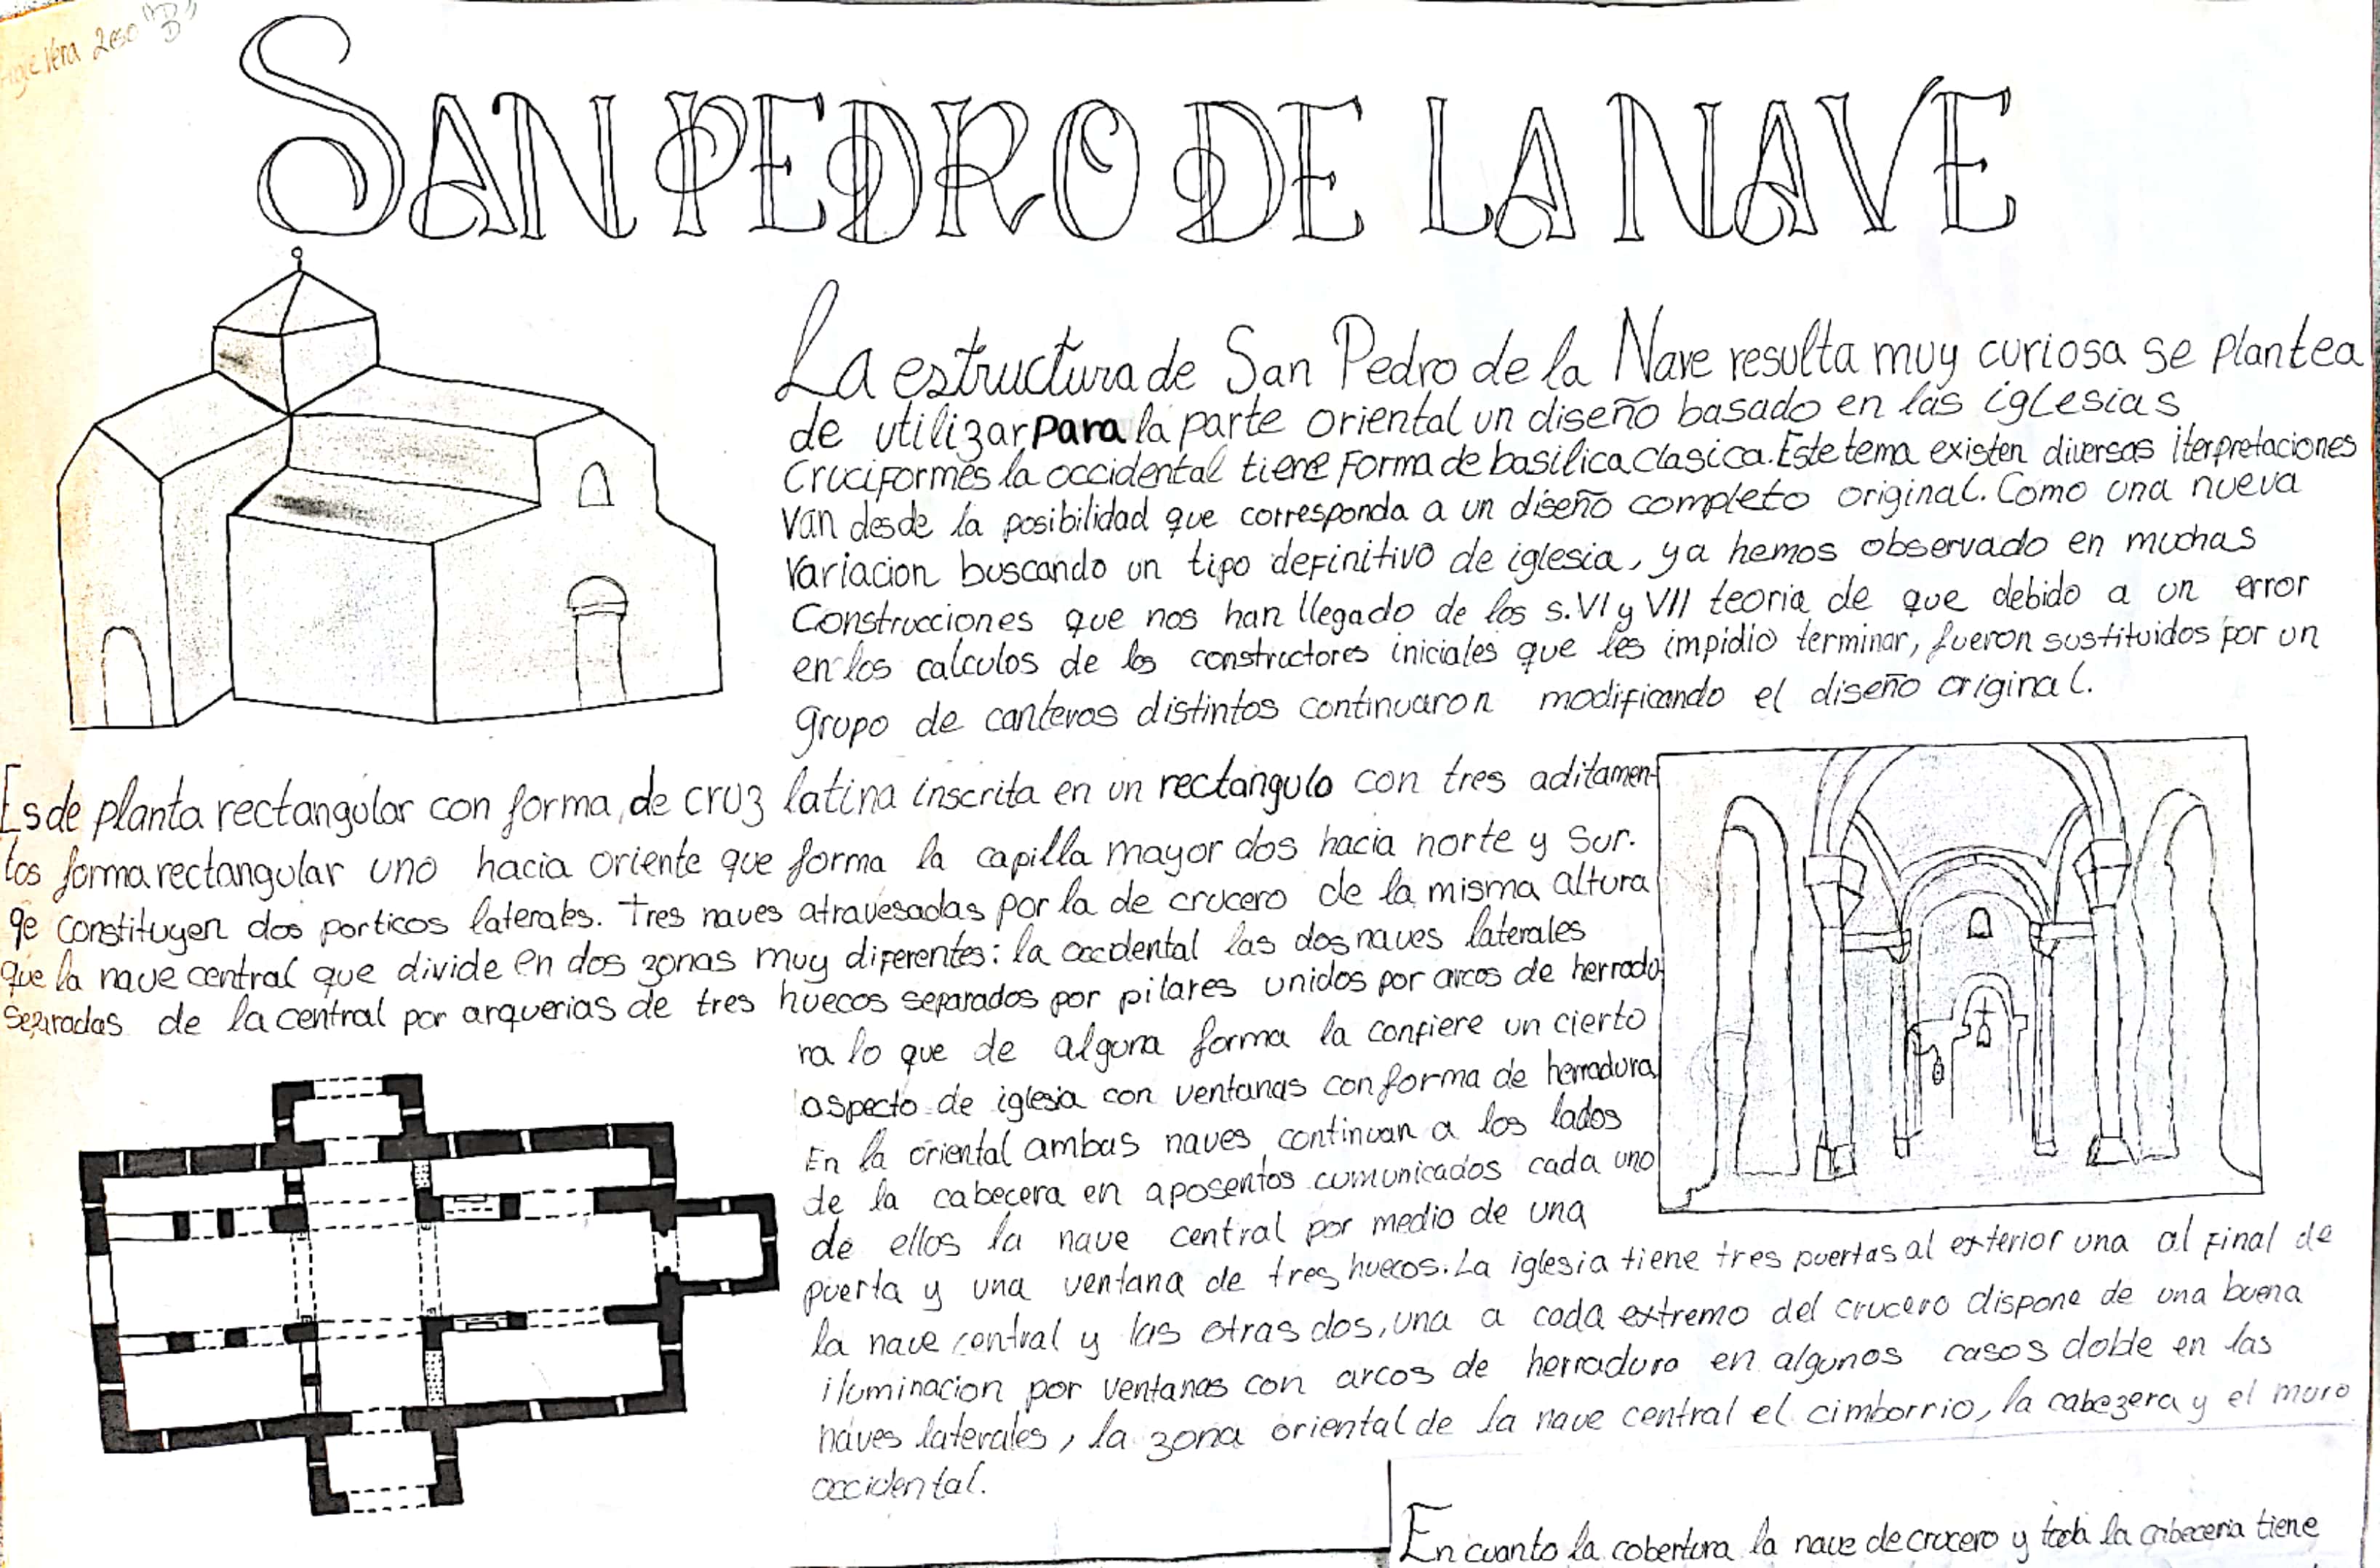 Vera 2eso "B"
SAN PEDRO DE LA NAVE
La estructura de San Pedro de la Nave resulta muy curiosa se plantea
de utilizar para la parte oriental un diseño basado en las iglesias
Cruciformes la occidental tiene Forma de basilica clasica. Este tema existen diversas iterpretaciones
van desde la posibilidad que corresponda a un diseño completo original. Como una nueva
Variacion buscando un tipo definitivo de iglesia, ya hemos observado en muchas
Construcciones que nos han llegado de los s.VI y VII teoria de que debido a un error
en los calculos de los constructores iniciales que les impidio terminar, fueron sustituidos por un
grupo de canteros distintos continuaron modificando el diseño original.
Es de planta rectangular con forma de cruz latina inscrita en un rectangulo con tres aditamen-
tos forma rectangular uno hacia oriente que forma la capilla mayor dos hacia norte y sur.
qe constituyen dos porticos laterales. Tres naves atravesadas por la de crucero de la misma altura
que la nave central que divide en dos zonas muy diferentes: la occidental las dos naves laterales
separadas de la central por arquerias de tres huecos separados por pilares unidos por arcos de herradu-
ra lo que de alguna forma la confiere un cierto
aspecto de iglesia con ventanas con forma de herradura
En la oriental ambas naves continuan a los lados
de la cabecera en aposentos comunicados cada uno
de ellos la nave central por medio de una
puerta y una ventana de tres huecos. La iglesia tiene tres puertas al exterior una al final de
la nave central y las otras dos, una a cada extremo del crucero dispone de una buena
iluminacion por ventanas con arcos de herradura en algunos casos doble en las
naves laterales, la zona oriental de la nave central el cimborrio, la cabezera y el muro
occidental.
En cuanto la cobertura la nave de crucero y toda la cabeceria tiene